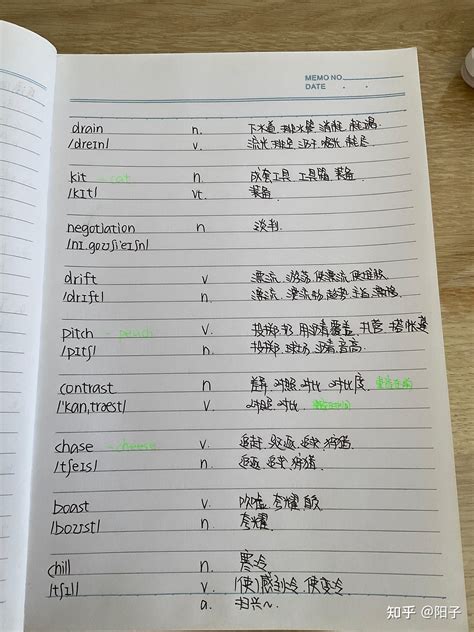 MEMO NO.
DATE . .
drain n. 下水道 排水管 消耗 耗竭
/dreɪn/ v. 流光 排空 喝光 耗尽
kit - cat n. 成套工具 工具箱 装备
/kɪt/ vt. 装备
negotiation n 谈判
/nɪ.goʊʃi'eɪʃn/
drift v. 漂流 游荡 使漂流
/drɪft/ n. 漂流 漂流动 趋势 主旨
pitch v. 投掷 用沥青覆盖 扎营 搭帐篷
/pɪtʃ/ n. 投掷 球场 沥青 音高
contrast n 差异 对照 对比 对比度
/'kɑn,træst/ v. 对照 对比
chase - cheese v. 追赶 追逐 追求 狩猎
/tʃeɪs/ n. 追逐 追求 狩猎
boast v. 吹嘘 夸耀 自负
/boʊst/ n. 夸耀
chill n. 寒冷
/tʃɪl/ v. (使)感到冷 使变冷
a. 扫兴~
知乎 @阳子